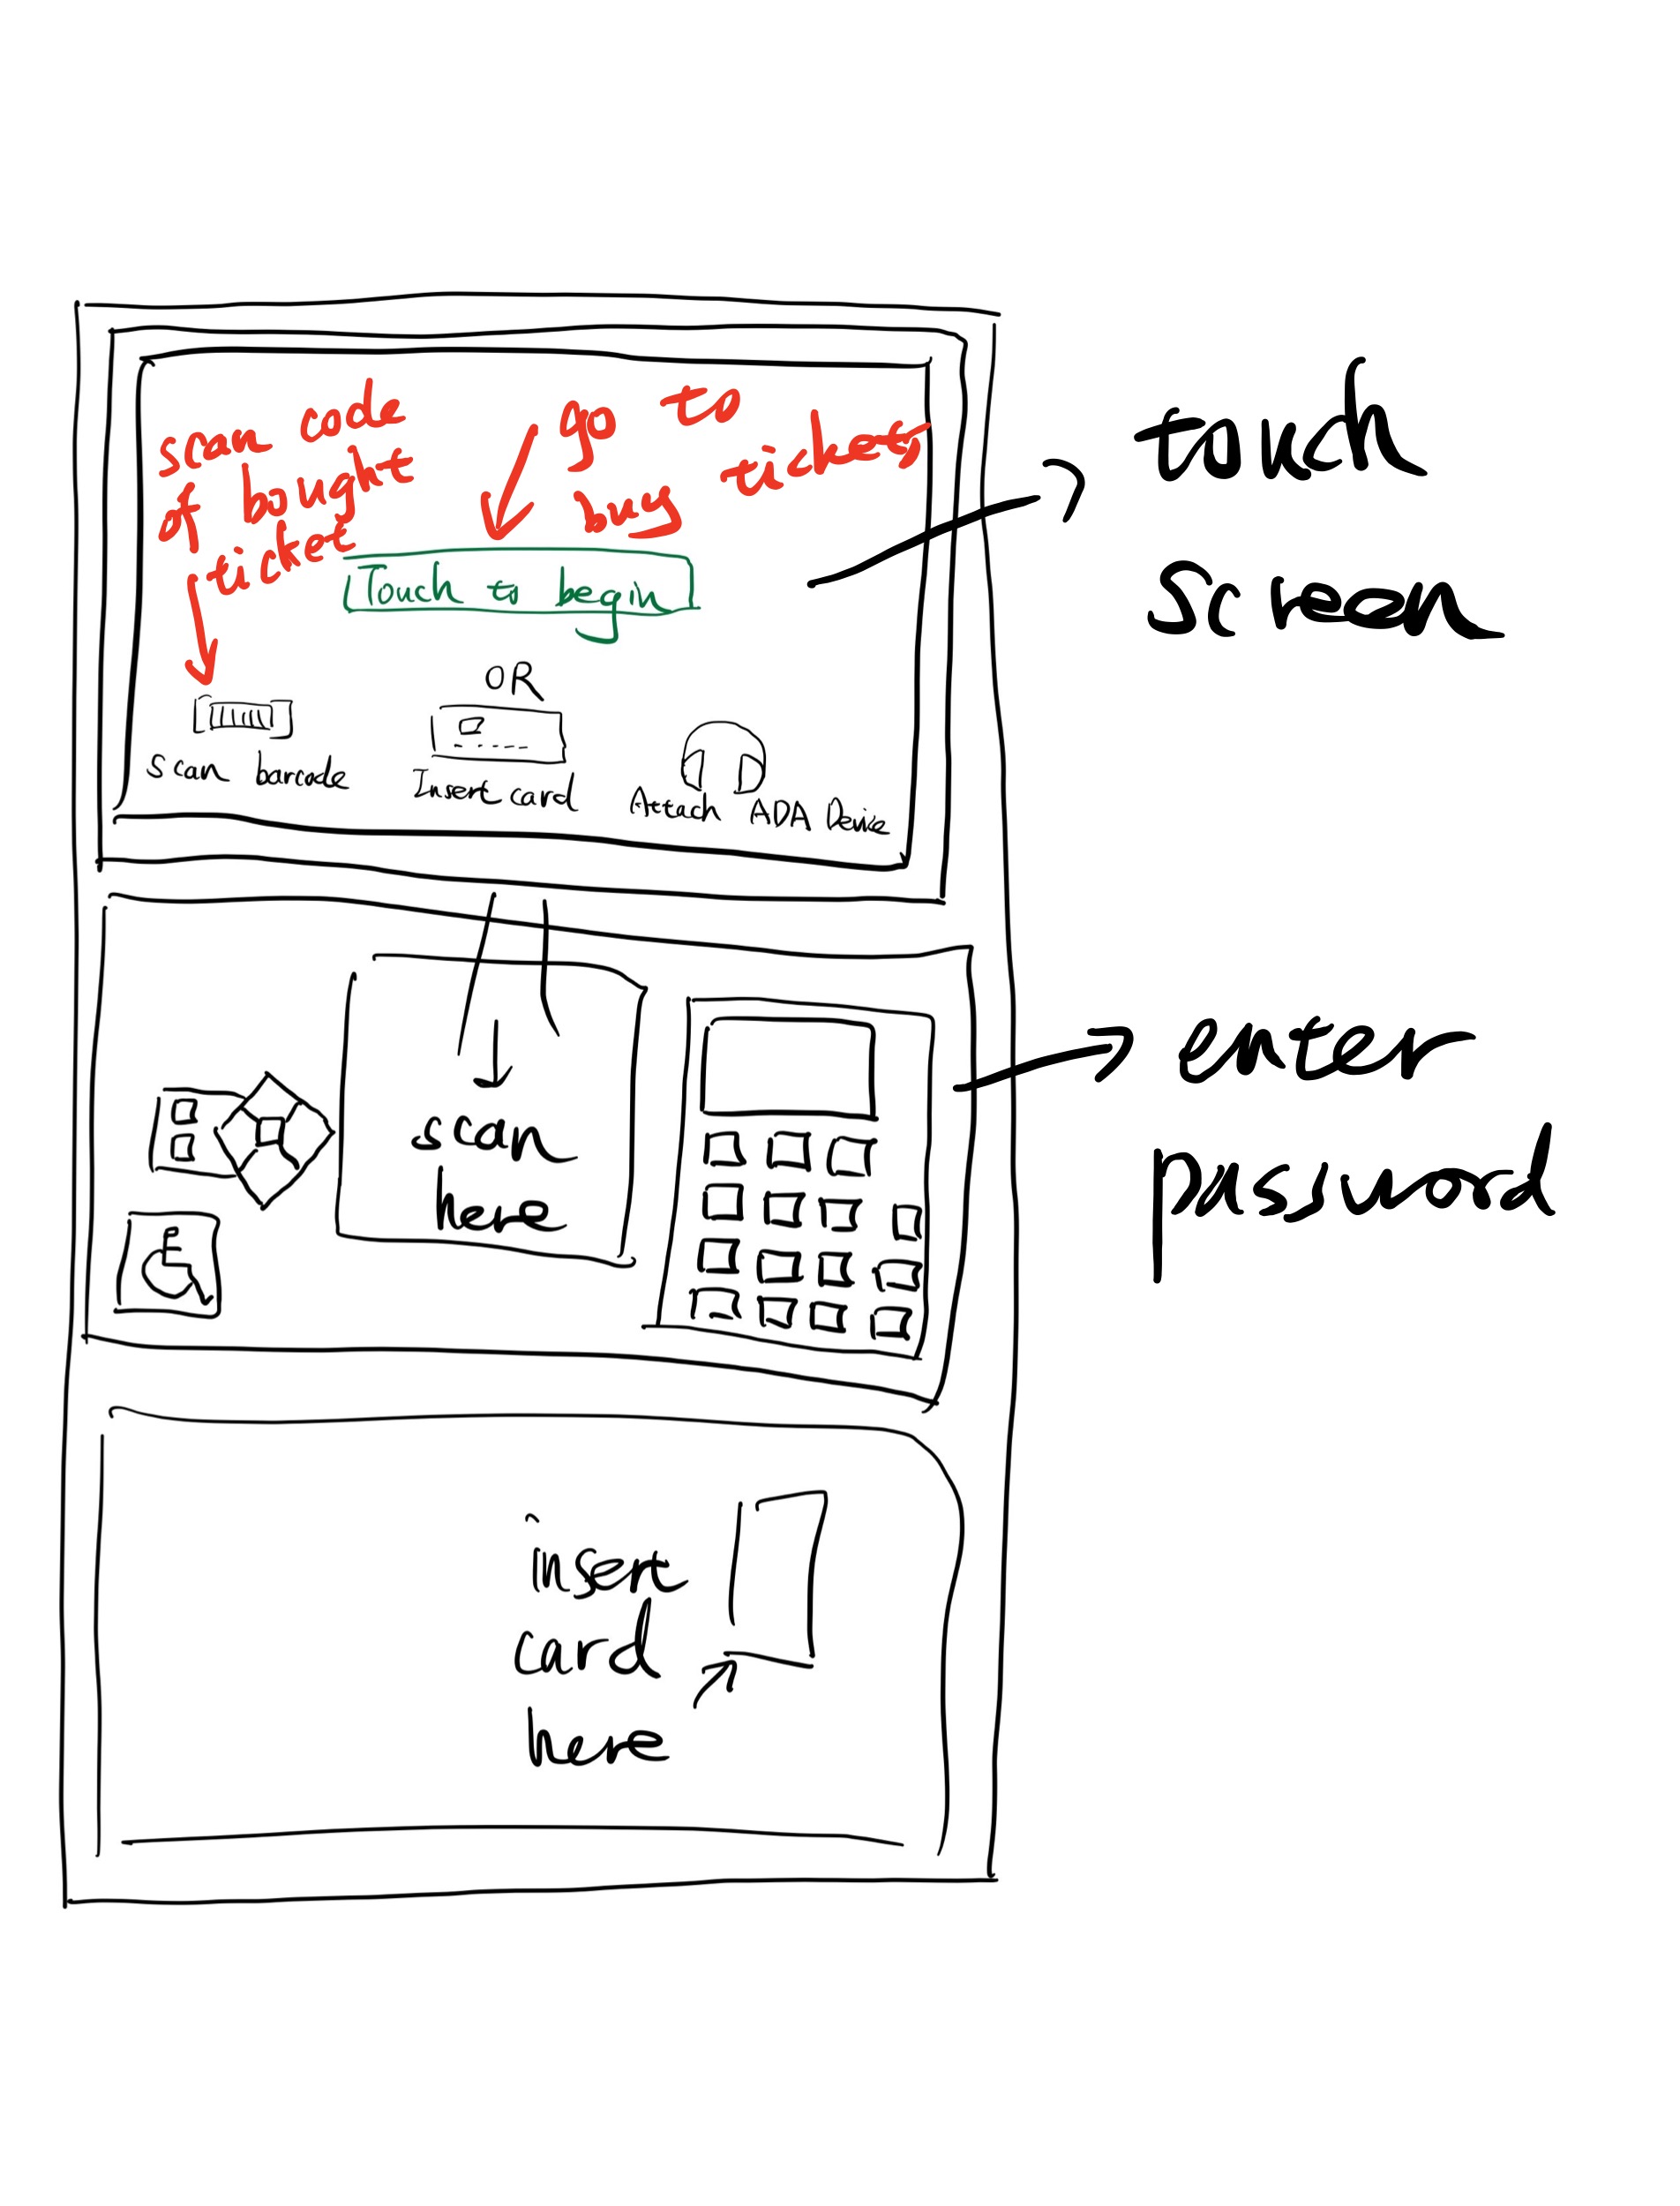 scan code
of bought
ticket
go to
buy tickets
Touch to begin
OR
Scan barcode
Insert card
Attach ADA Device
touch
screen
scan
here
enter
password
insert
card
here